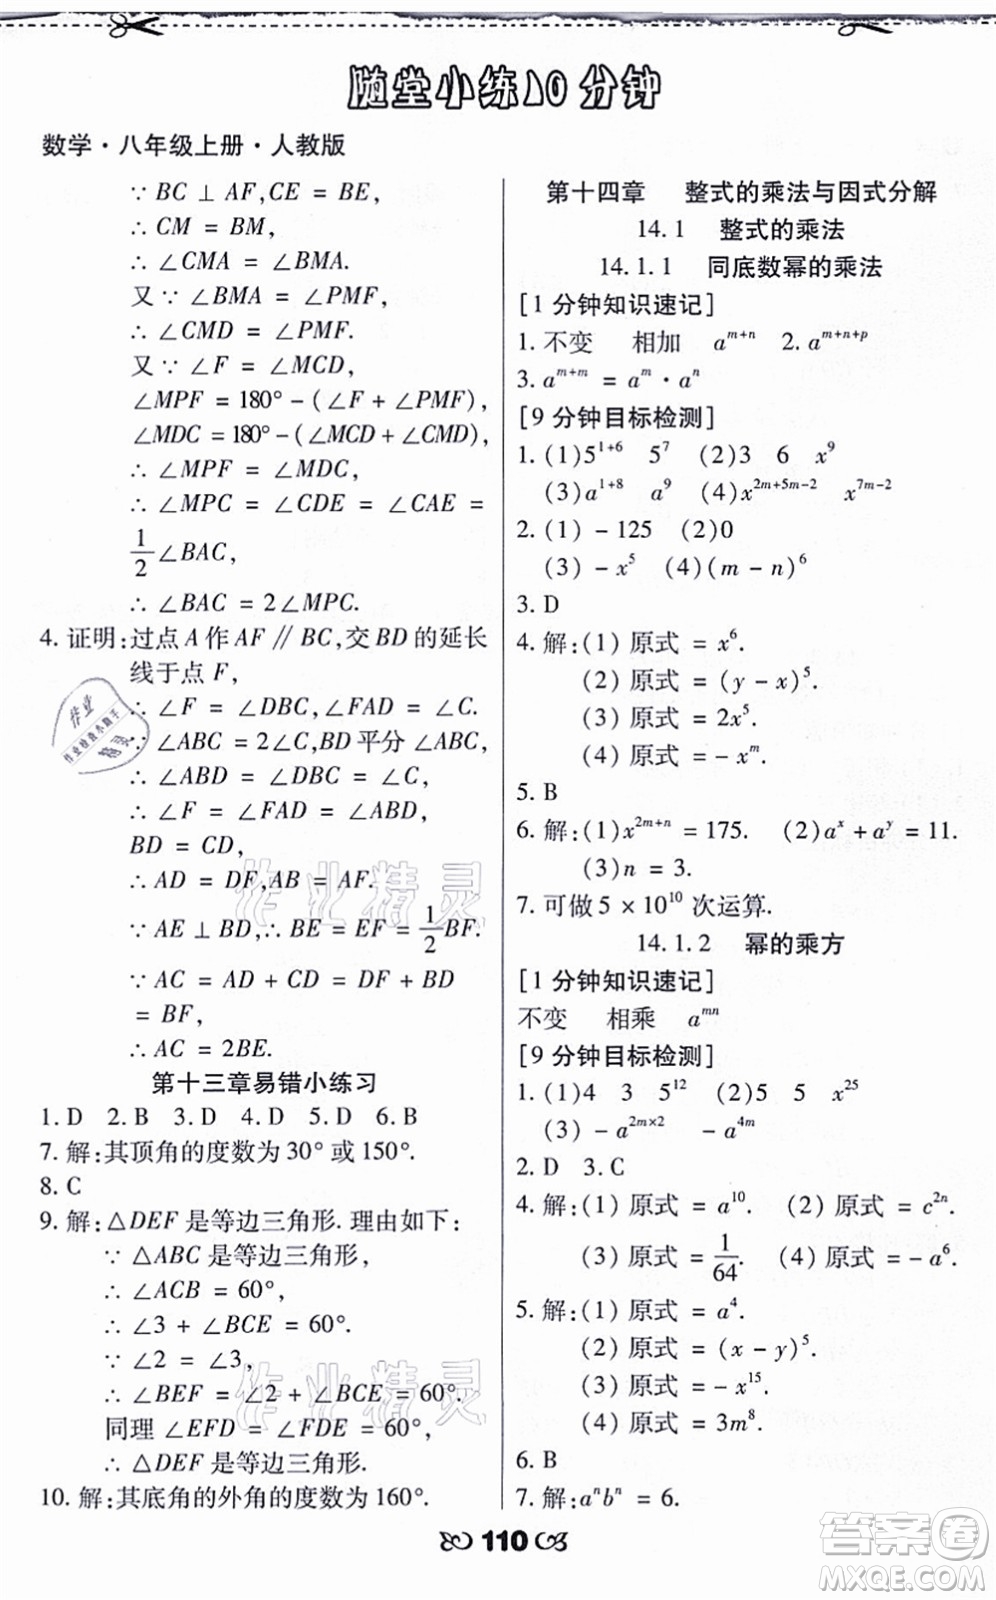 随堂小练10分钟
数学·八年级上册·人教版
∵ BC ⊥ AF,CE = BE,
∴ CM = BM,
∴ ∠CMA = ∠BMA.
又∵ ∠BMA = ∠PMF,
∴ ∠CMD = ∠PMF.
又∵ ∠F = ∠MCD,
∠MPF = 180° - (∠F + ∠PMF),
∠MDC = 180° - (∠MCD + ∠CMD),
∴ ∠MPF = ∠MDC,
∴ ∠MPC = ∠CDE = ∠CAE =
1/2 ∠BAC,
∴ ∠BAC = 2∠MPC.
4. 证明:过点 A 作 AF ∥ BC,交 BD 的延长
线于点 F,
∴ ∠F = ∠DBC, ∠FAD = ∠C.
∵ ∠ABC = 2∠C,BD 平分 ∠ABC,
∴ ∠ABD = ∠DBC = ∠C,
∴ ∠F = ∠FAD = ∠ABD,
BD = CD,
∴ AD = DF,AB = AF.
∵ AE ⊥ BD,∴ BE = EF = 1/2 BF.
∵ AC = AD + CD = DF + BD
= BF,
∴ AC = 2BE.
第十三章易错小练习
1. D 2. B 3. D 4. D 5. D 6. B
7. 解:其顶角的度数为 30° 或 150°.
8. C
9. 解:△DEF 是等边三角形. 理由如下:
∵ △ABC 是等边三角形,
∴ ∠ACB = 60°,
∴ ∠3 + ∠BCE = 60°.
∵ ∠2 = ∠3,
∴ ∠BEF = ∠2 + ∠BCE = 60°.
同理 ∠EFD = ∠FDE = 60°,
∴ △DEF 是等边三角形.
10. 解:其底角的外角的度数为 160°.
第十四章 整式的乘法与因式分解
14.1 整式的乘法
14.1.1 同底数幂的乘法
[1 分钟知识速记]
1. 不变 相加 a^{m+n} 2. a^{m+n+p}
3. a^{m+m} = a^m · a^n
[9 分钟目标检测]
1. (1)5^{1+6} 5^7 (2)3 6 x^9
(3)a^{1+8} a^9 (4)x^{2m+5m-2} x^{7m-2}
2. (1) - 125 (2)0
(3) - x^5 (4)(m - n)^6
3. D
4. 解:(1) 原式 = x^6.
(2) 原式 = (y - x)^5.
(3) 原式 = 2x^5.
(4) 原式 = - x^m.
5. B
6. 解:(1)x^{2m+n} = 175. (2)a^x + a^y = 11.
(3)n = 3.
7. 可做 5 × 10^{10} 次运算.
14.1.2 幂的乘方
[1 分钟知识速记]
不变 相乘 a^{mn}
[9 分钟目标检测]
1. (1)4 3 5^{12} (2)5 5 x^{25}
(3) - a^{2m×2} - a^{4m}
2. D 3. C
4. 解:(1) 原式 = a^{10}. (2) 原式 = c^{2n}.
(3) 原式 = 1/64. (4) 原式 = - a^6.
5. 解:(1) 原式 = a^4.
(2) 原式 = (x - y)^5.
(3) 原式 = - x^{15}.
(4) 原式 = 3m^8.
6. B
7. 解:a^n b^n = 6.
110
作业
作业检查小助手
精灵
作业精灵
作业精灵
答案卷
MXQE.COM